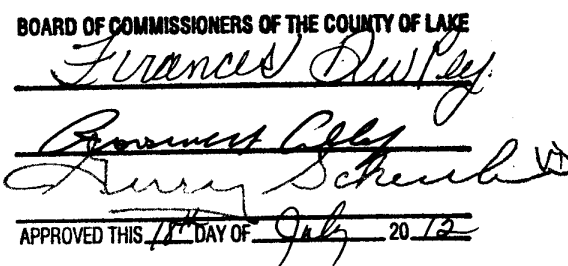 BOARD OF COMMISSIONERS OF THE COUNTY OF LAKE
Frances DuPey
Roosevelt Allen
Gerry Scheub
APPROVED THIS 18th DAY OF July 2012